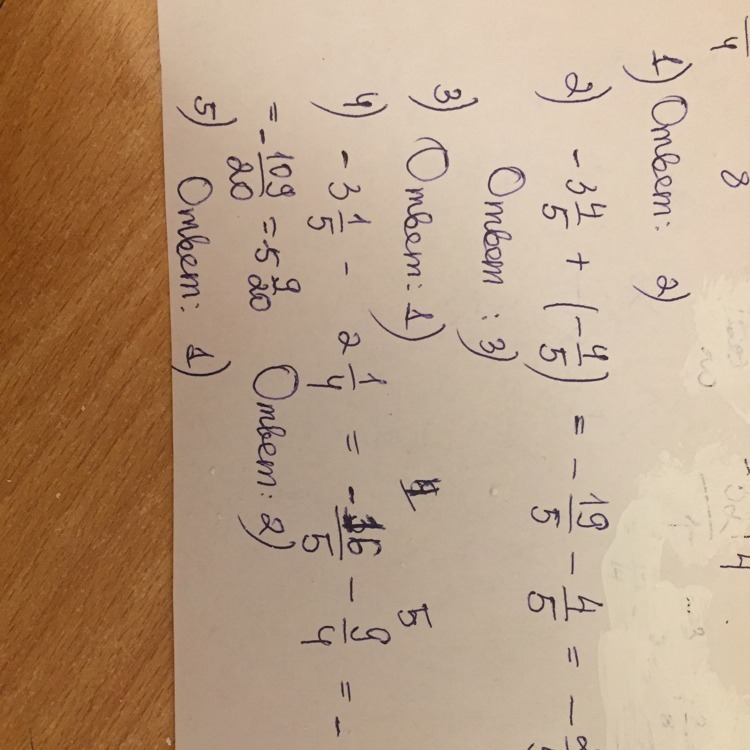 1) Ответ: 2)
2) -3 4/5 + (-4/5) = -19/5 - 4/5 = -
Ответ: 3)
3) Ответ: 1)
4) -3 1/5 - 2 1/4 = -16/5 - 9/4 = -
4 5
= -109/20 = 5 9/20 Ответ: 2)
5) Ответ: 1)